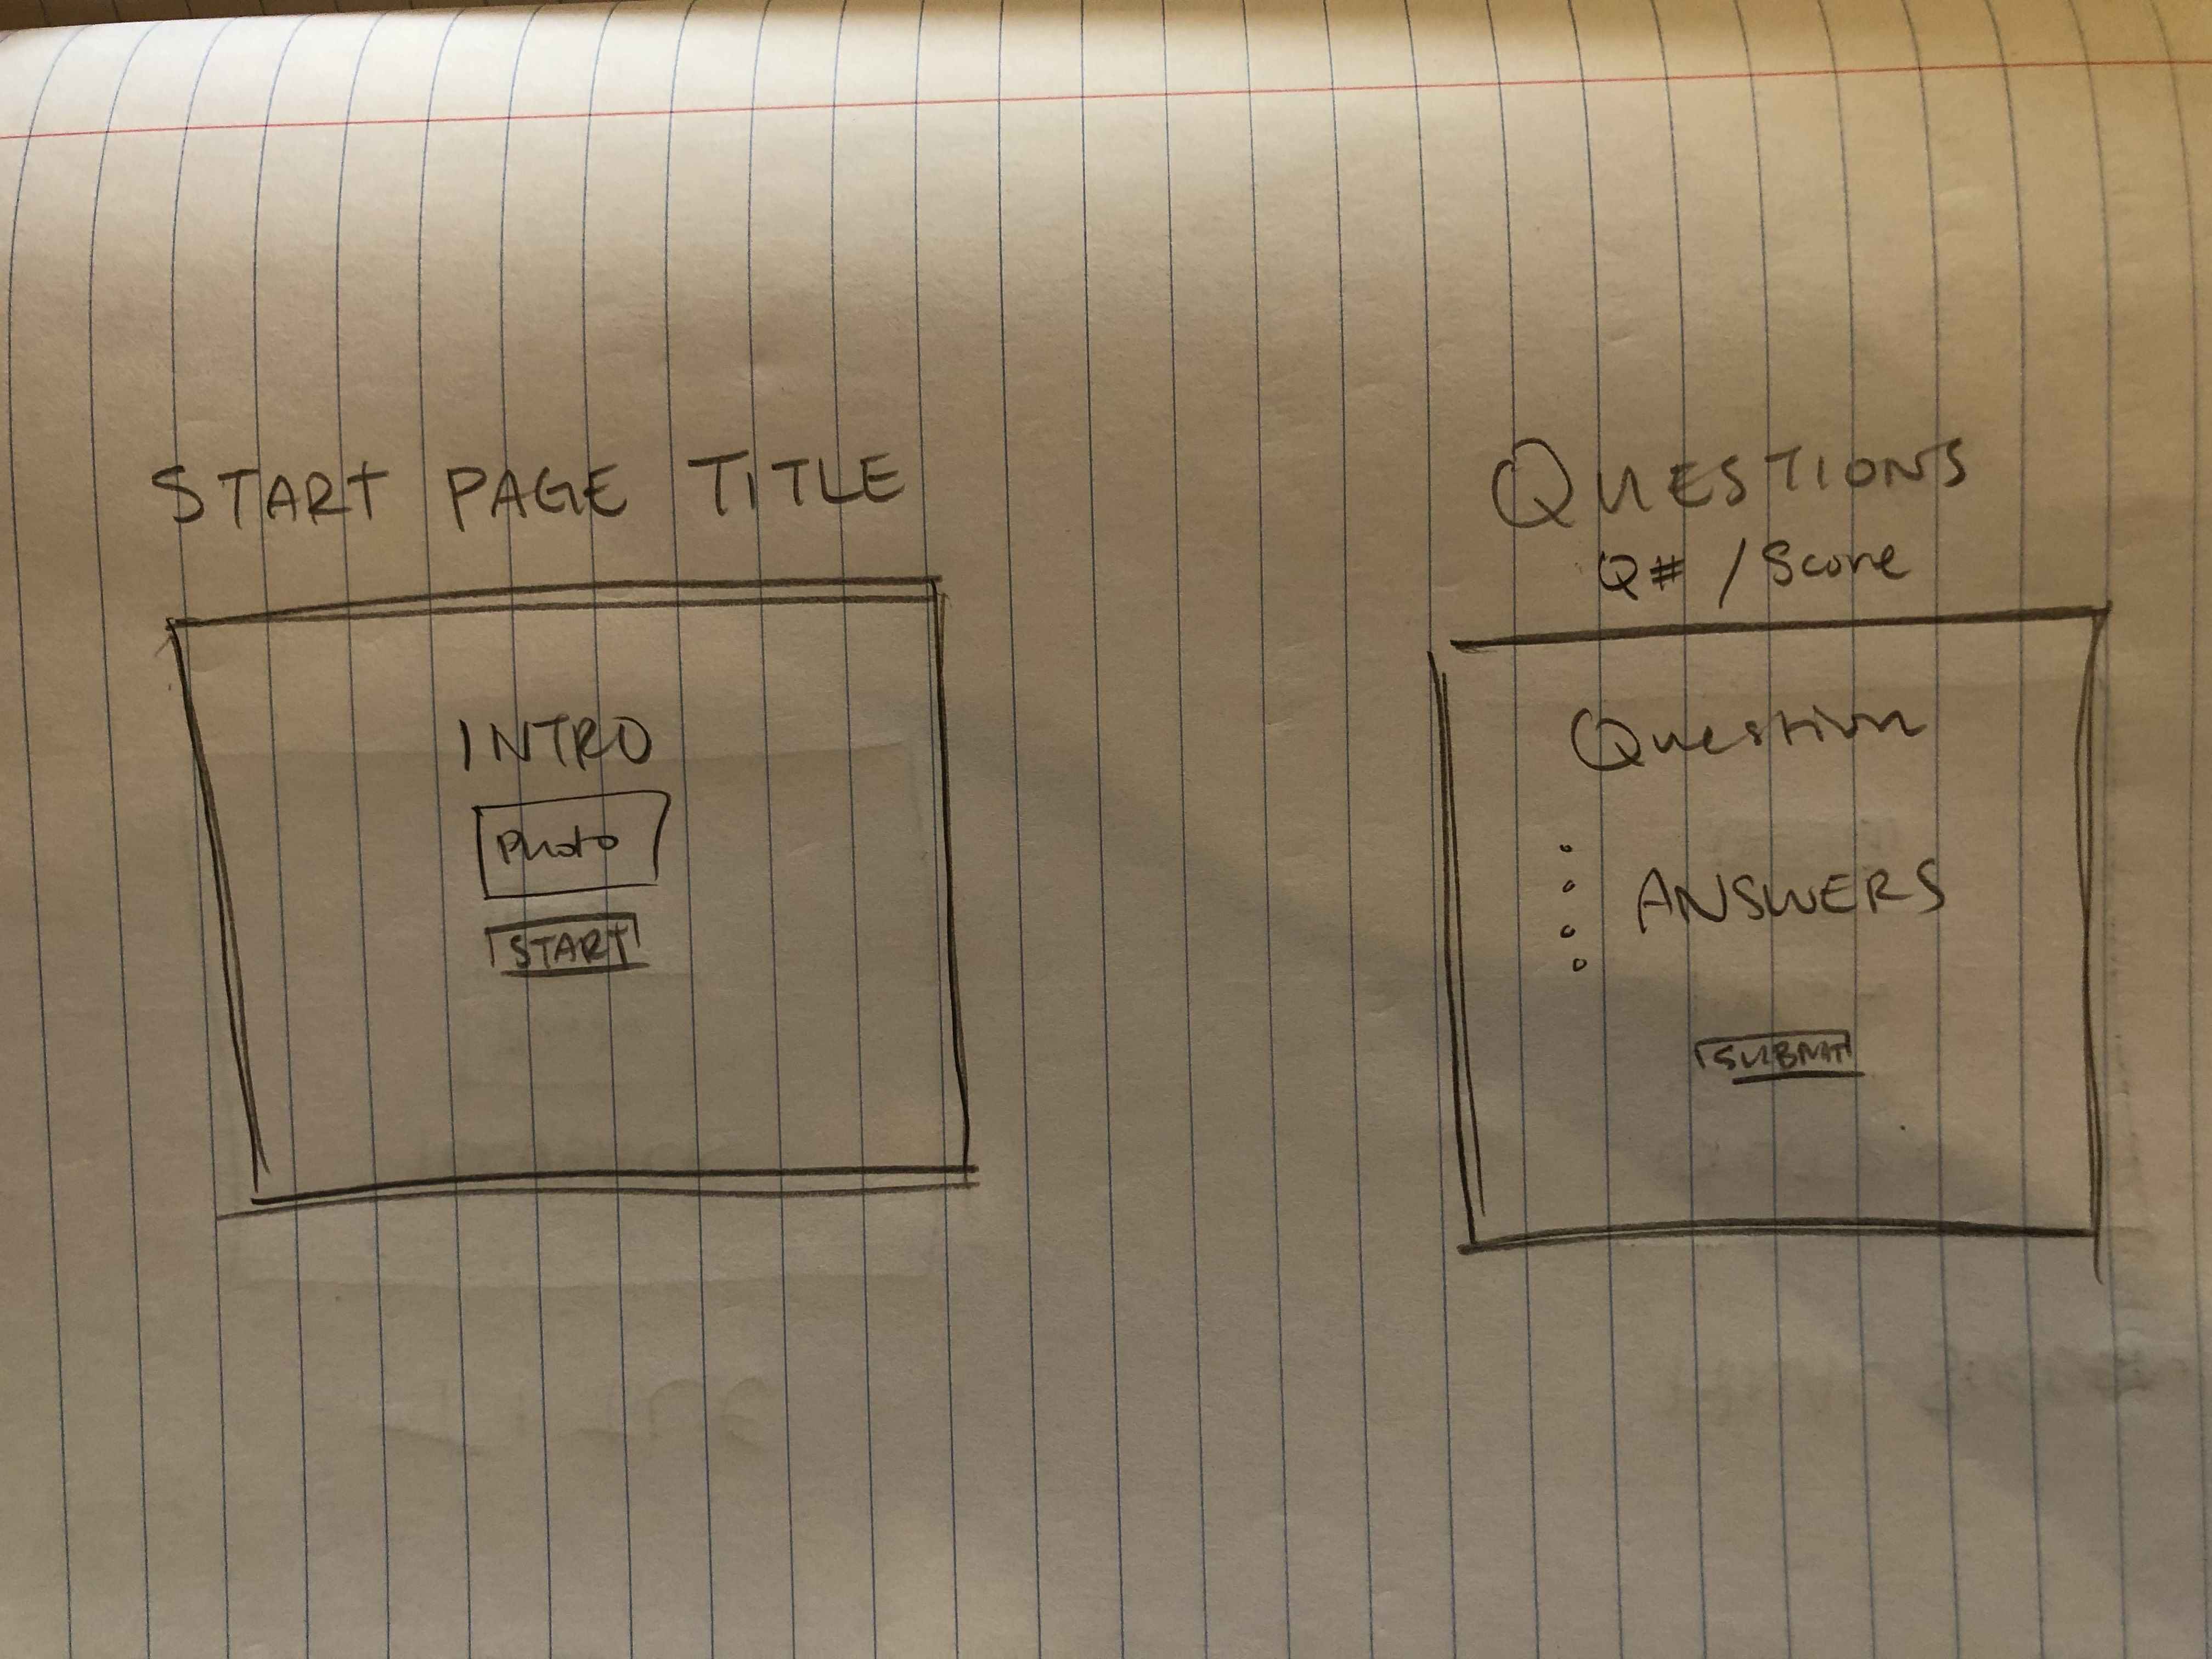 START PAGE TITLE
INTRO
Photo
START
QUESTIONS
Q# / Score
Question
ANSWERS
SUBMIT